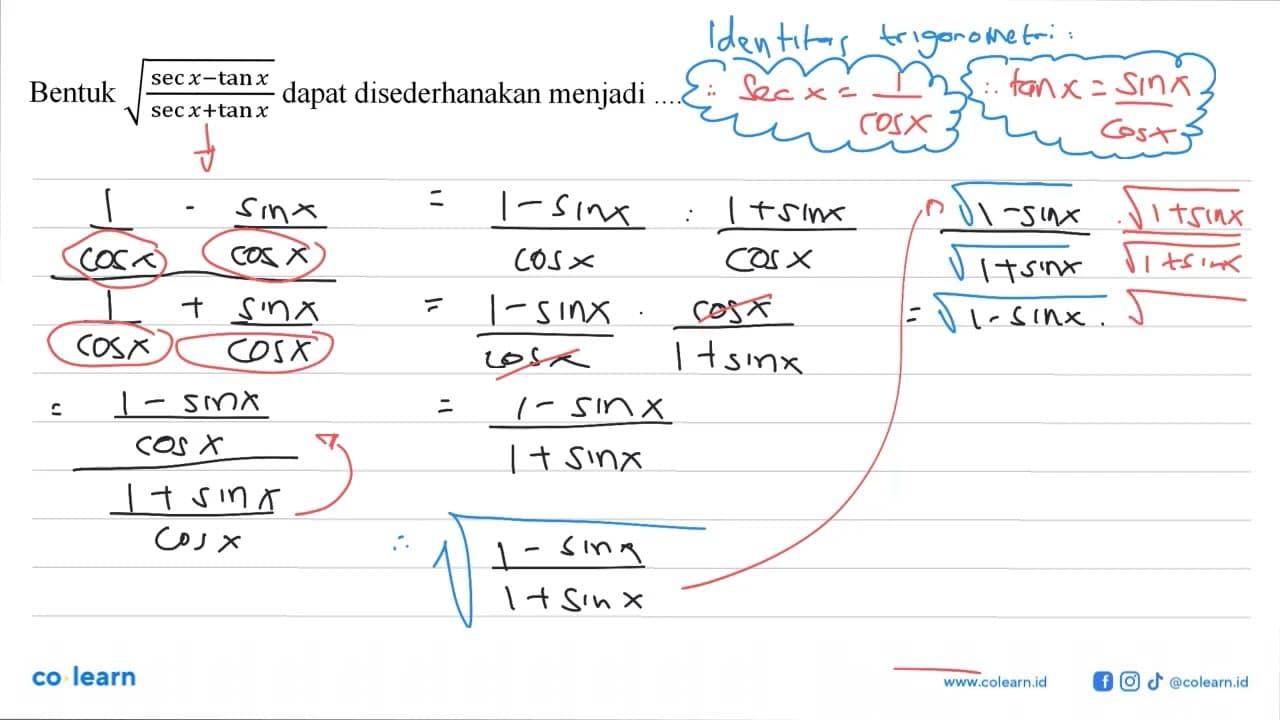 Identitas trigonometri :
Bentuk √((sec x−tan x)/(sec x+tan x)) dapat disederhanakan menjadi ....
∴ sec x = 1/cos x
∴ tan x = sin x/cos x
(1/cos x - sin x/cos x)/(1/cos x + sin x/cos x)
= ((1 - sin x)/cos x)/((1 + sin x)/cos x)
= (1 - sin x)/cos x : (1 + sin x)/cos x
= (1 - sin x)/cos x . cos x/(1 + sin x)
= (1 - sin x)/(1 + sin x)
∴ √((1 - sin x)/(1 + sin x))
√(1 - sin x)/√(1 + sin x) . √(1 + sin x)/√(1 + sin x)
= √(1 - sin x) . √
co learn
www.colearn.id
@colearn.id